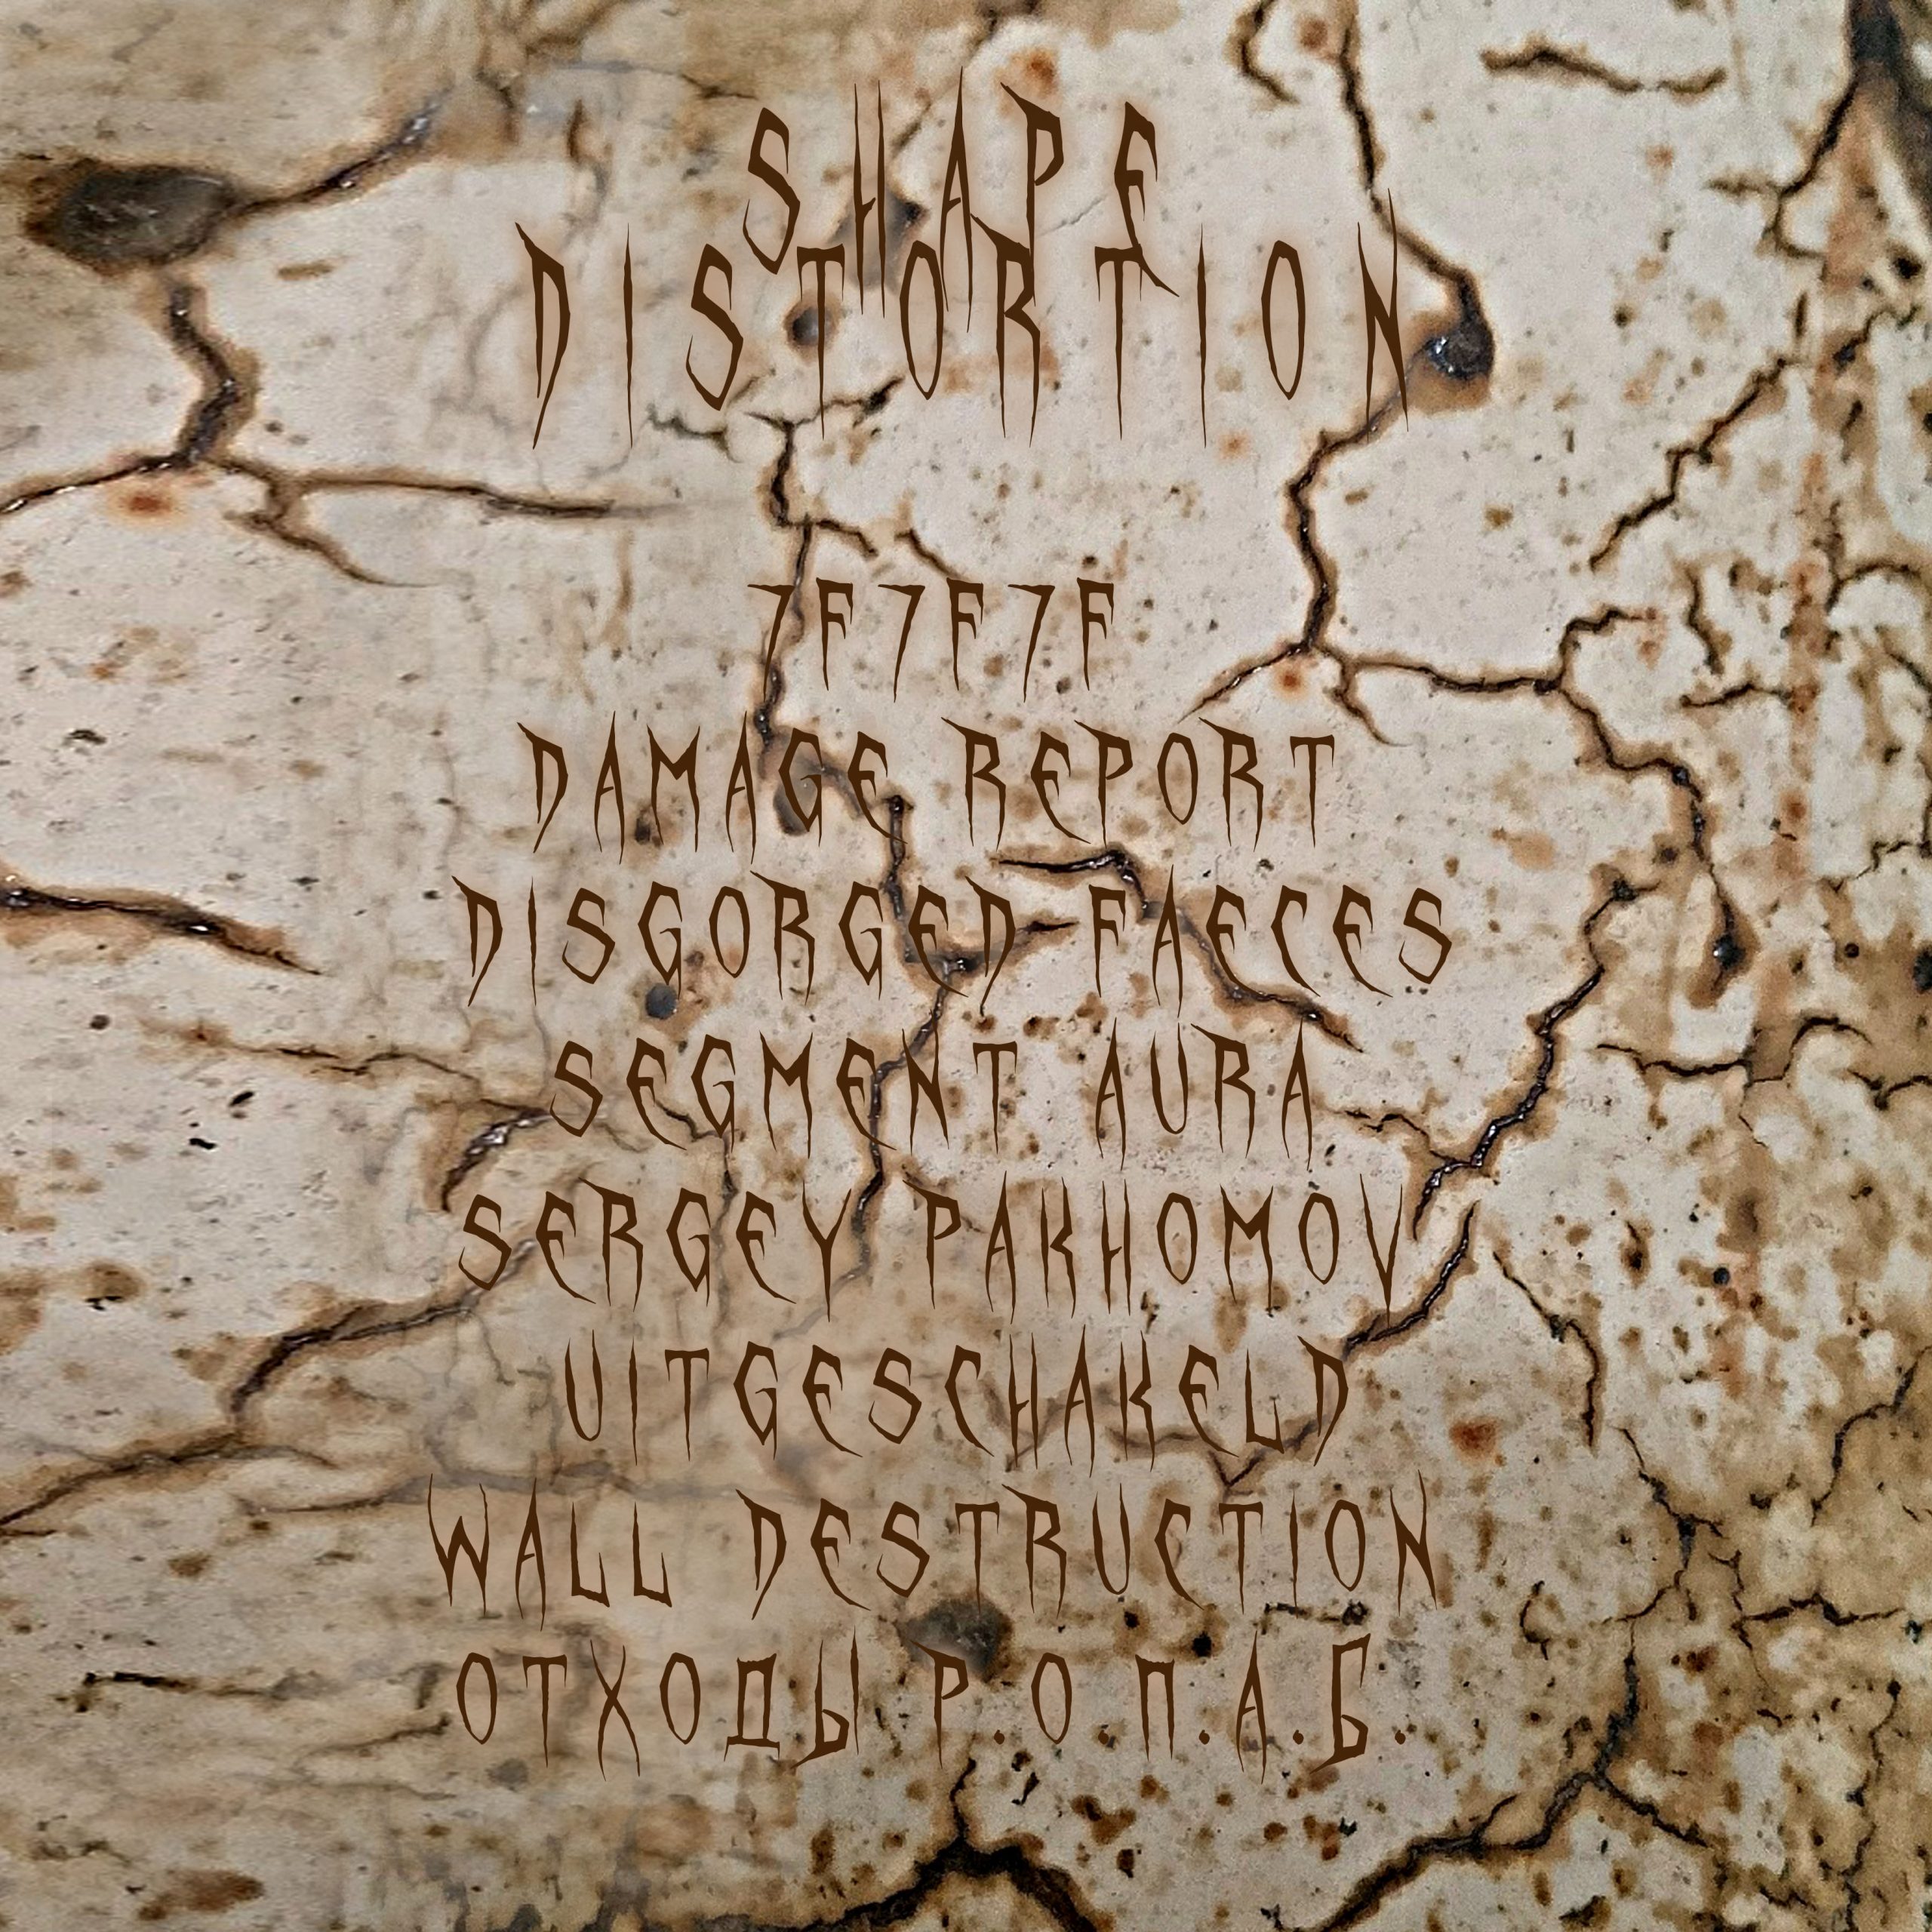 SHAPE
DISTORTION
7F7F7F
DAMAGE REPORT
DISGORGED FAECES
SEGMENT AURA
SERGEY PAKHOMOV
UITGESCHAKELD
WALL DESTRUCTION
ОТХОДЫ Р.О.П.А.Б.